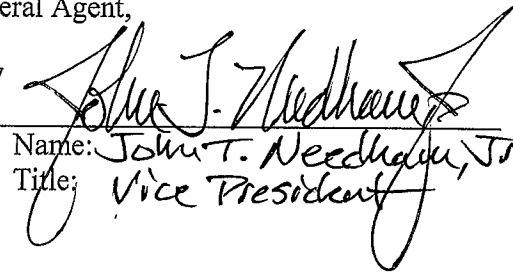 eral Agent,
John T. Needham, Jr
Name: John T. Needham, Jr
Title: Vice President